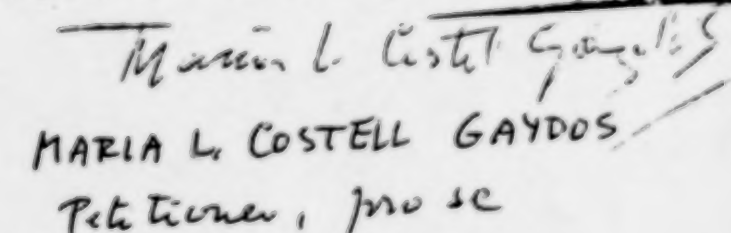 Maria L. Costell Gaydos
MARIA L. COSTELL GAYDOS
Petitioner, pro se